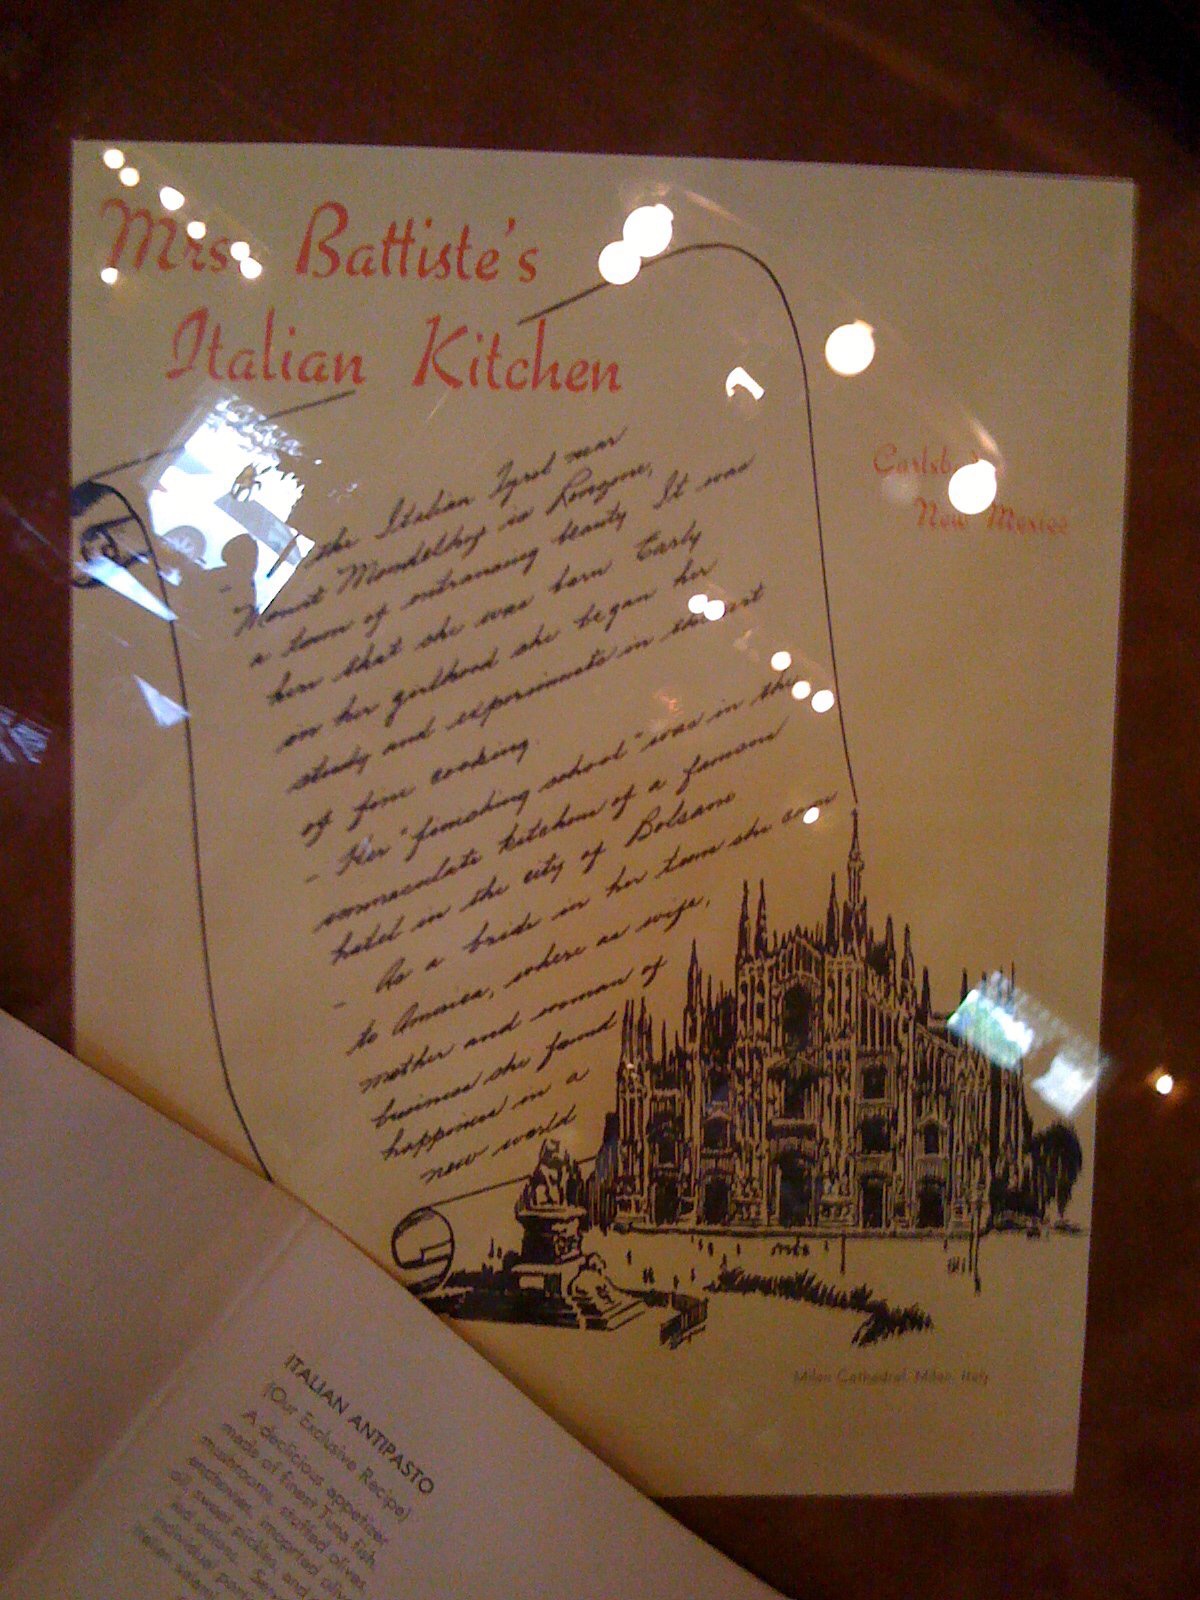 Mrs. Battiste's
Italian Kitchen
Carlsb
New Mexico
- the Italian Tyrol near
Mount is Ronzone,
a town of entrancing beauty It was
here that she was born Early
in her girlhood she began her
study and experiments in the art
of fine cooking.
- Her "finishing school" was in the
immaculate kitchen of a famous
hotel in the city of Bolsano
- As a bride in her teens she came
to America, where as wife,
mother and woman of
business she found
happiness in a
new world
Milan Cathedral, Milan, Italy
ITALIAN ANTIPASTO
(Our Exclusive Recipe)
A delicious appetizer
made of finest Tuna fish,
mushrooms, stuffed olives,
anchovies, imported olive
oil, sweet pickles, and
red onions. Ser
individual port
Italian salami